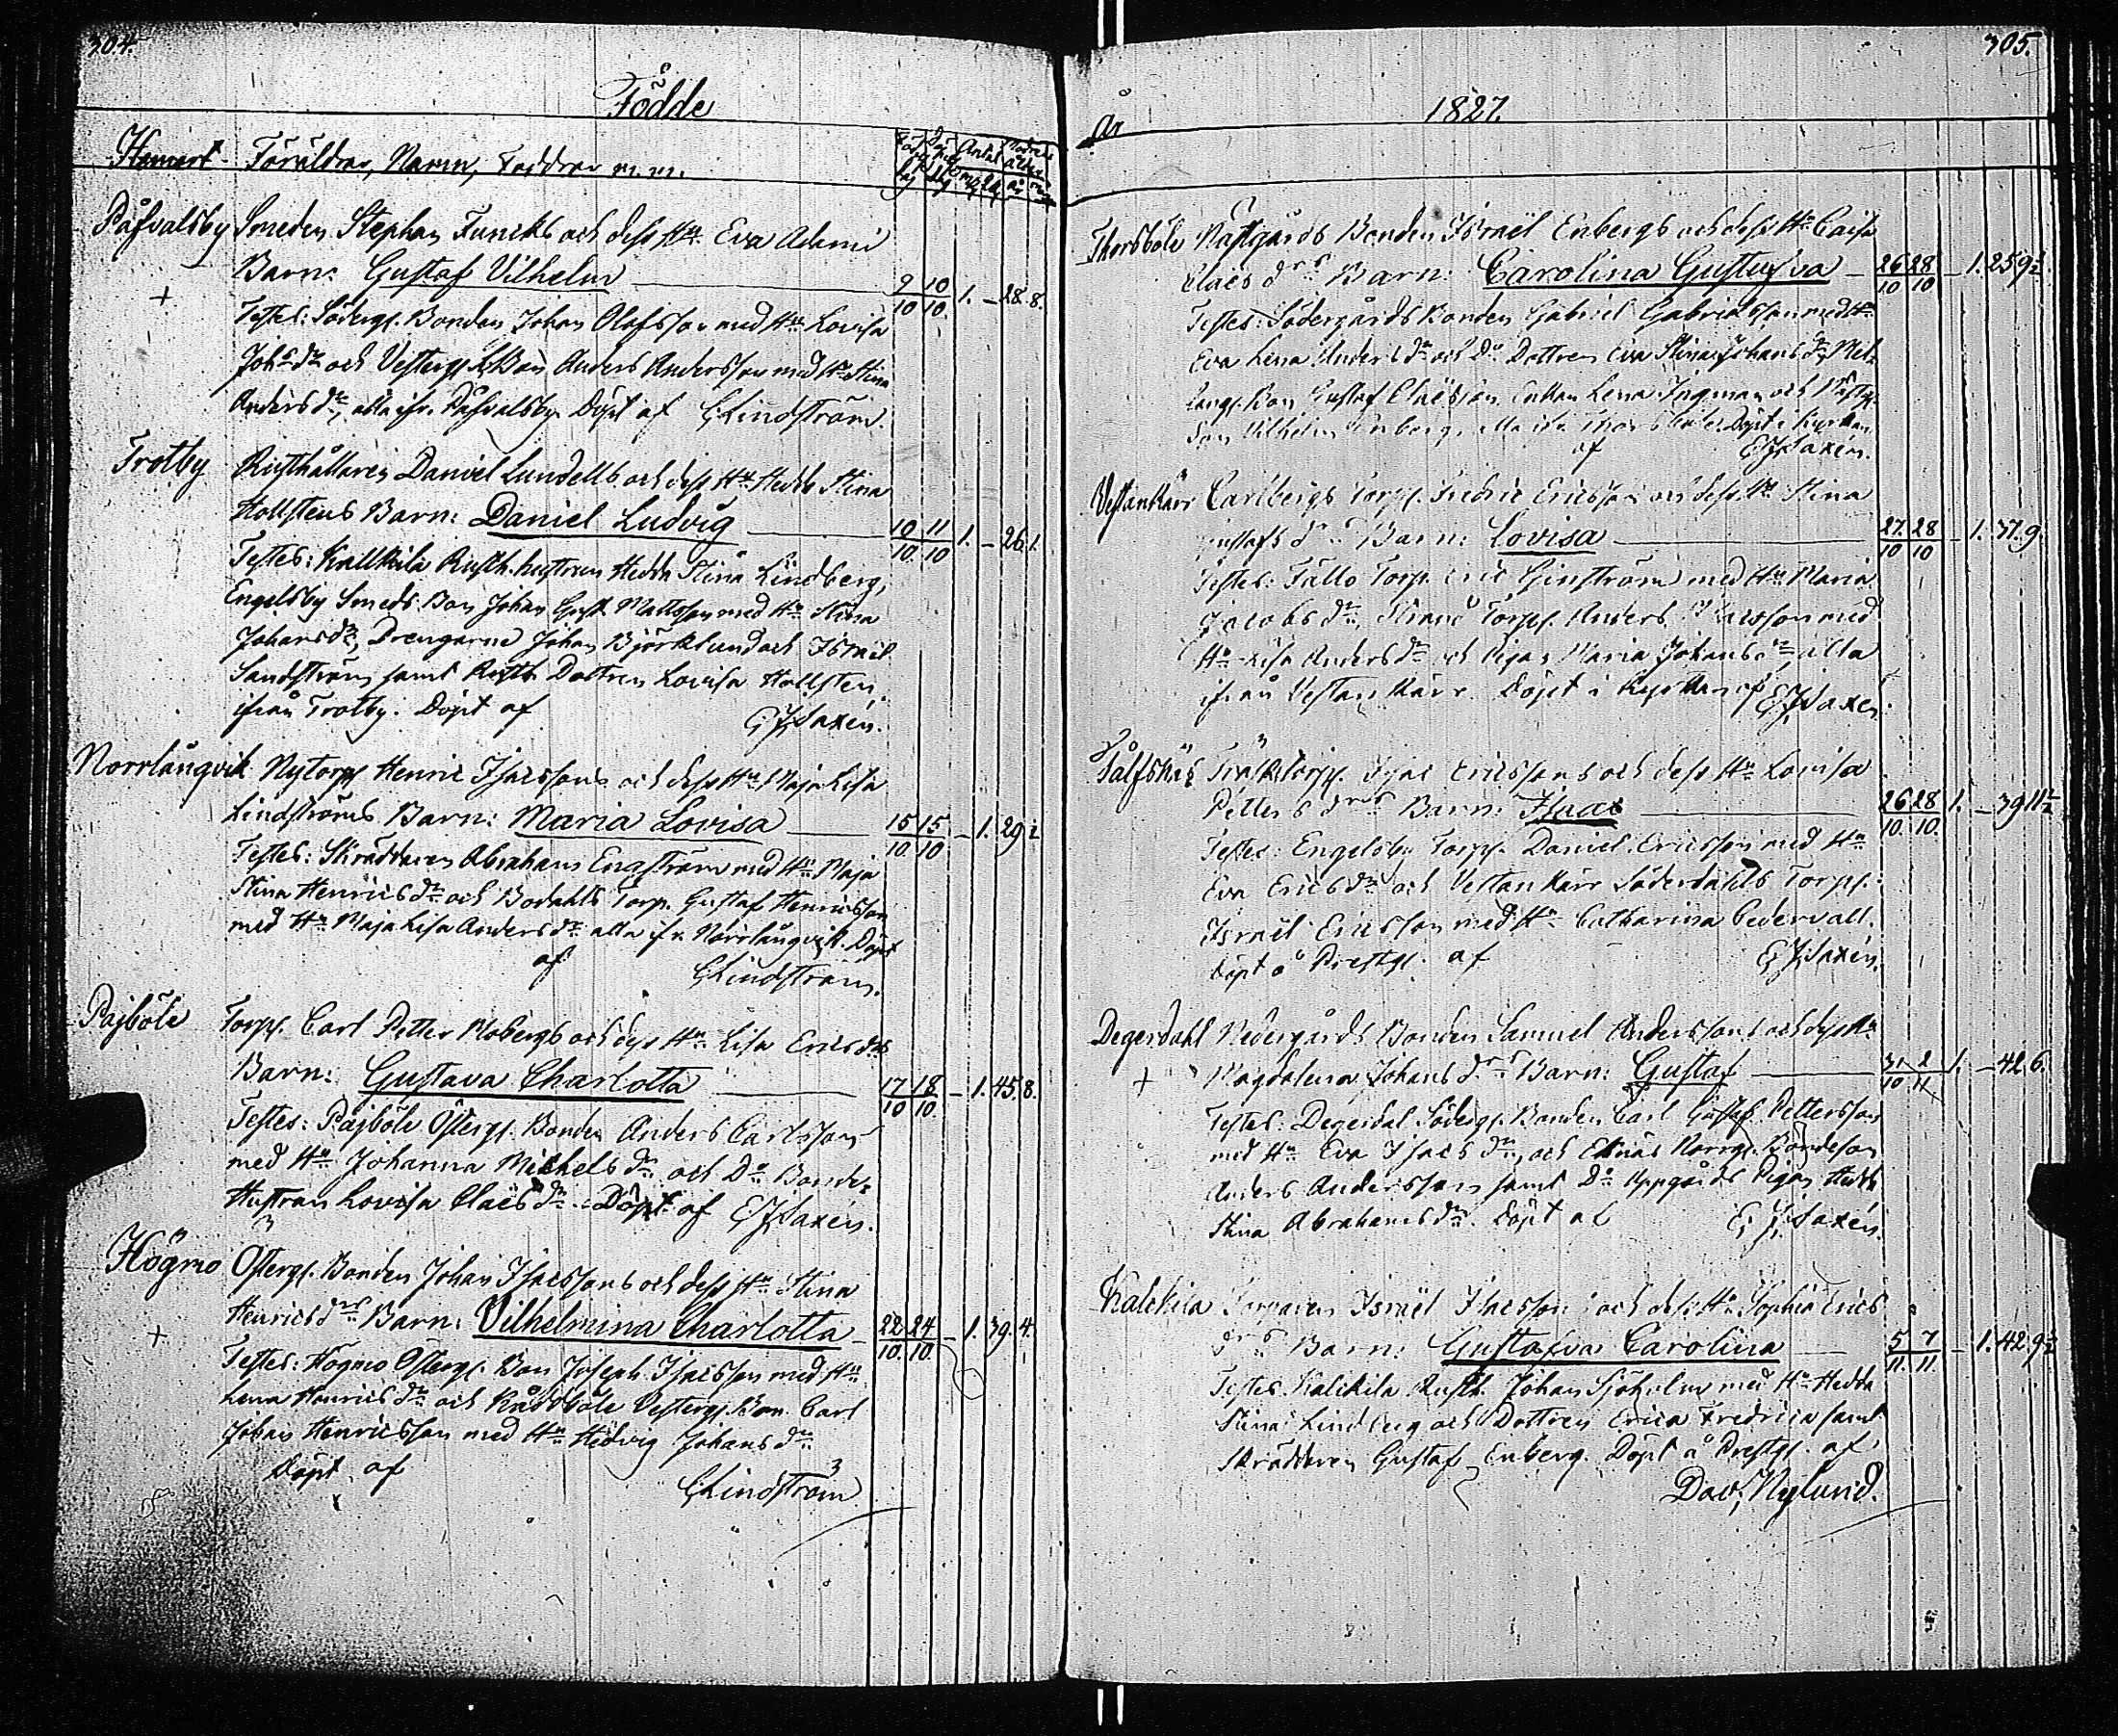 304.
Födde
Hemort Föräldrar, Namn, Faddrar m. m.
Påfvalsby Smeden Stephan Funcks och dess Hu Eva Adami
Barn: Gustaf Vilhelm 9/10 10/10 1. – 28. 8.
+
Testes: Södergs. Bonden Johan Olofsson med Hu Lovisa
Johsdr och Vestergs Bon Anders Andersson med Hu Stina
Andersdr, alla ifr. Påfvalsby. Döpt af GLindström.
Trotby Rusthållaren Daniel Lundells och dess Hu Hedda Stina
Hollstens Barn: Daniel Ludvig 10/10 11/10 1. – 26. 1.
Testes: Kallkila Rusth. hustrun Hedda Stina Lindberg,
Engelsby Smeds Bon Johan Gust. Mattsson med Hu Stina
Johansdr, Drengarne Johan Björklund och Israël
Sandström samt Rusth Dottren Lovisa Hollsten,
ifrån Trotby. Döpt af GJSaxén.
Norrlångvik Nytorps Henric Isacssons och dess Hu Maja Lisa
Lindströms Barn: Maria Lovisa 15/10 15/10 – 1. 29 ½
Testes: Skräddaren Abraham Engström med Hu Maja
Stina Henricsdr och Bodahls Torp. Gustaf Henricsson
med Hu Maja Lisa Andersdr alla ifr. Norrlångvik. Döpt
af GLindström.
Pajböle Torps. Carl Petter Mobergs och dess Hu Lisa Ericsdrs
Barn: Gustava Charlotta 17/10 18/10 – 1. 45. 8.
Testes: Pajböle Östergs. Bonden Anders Carlsson
med Hu Johanna Michelsdr och Do Bonde-
Hustrun Lovisa Claësdr. Döpt af GJSaxén.
Högmo Östergs. Bonden Johan Isacssons och dess Hu Stina
Henricsdrs Barn: Vilhelmina Charlotta 22/10 24/10 – 1. 39. 4.
+
Testes: Högmo Östergs. Bon Joseph Isacsson med Hu
Lena Henricsdr och Rådsböle Vestergs. Bon Carl
Johan Henricsson med Hu Hedvig Johansdr
Döpt af GLindström
305.
År 1827.
Thorsböle Nästgårds Bonden Israël Enbergs och dess Hu Caisa
Claësdrs Barn: Carolina Gustafva 26/10 28/10 – 1. 25 9½
Testes: Södergårds Bonden Gabriel Gabrielsson med Hu
Eva Lena Andersdr och Do Dottren Eva Stina Johansdr, Mel-
langs. Bon Gustaf Claësson, Enkan Lena Ingman och
Son Vilhelm Enberg, alla ifr Thorsböle. Döpt i Kyrkan
af GJSaxén.
Vestankärr Carlbergs Torps. Fredric Ericssons och dess Hu Stina
Gustafsdrs Barn: Lovisa 27/10 28/10 – 1. 37. 9
Testes: Torp. Eric Ginström med Hu Maria
Jacobsdr, Torps. Anders med
Hu Lisa Andersdr och Pigan Maria Johansdr, alla
ifrån Vestankärr. Döpt i Kyrkan af GJSaxén.
Sålfsnäs Torps. Isac Ericssons och dess Hu Lovisa
Pettersdrs Barn: Isaac 26/10 28/10 1. – 39 11½
Testes: Engelsby Torps. Daniel Ericsson med Hu
Eva Ericsdr och Vestankärr Söderdahls Torps.
Israël Ericsson med Hu Catharina Cedervall.
Döpt å Prestgs. af GJSaxén.
Degerdahl Nedergårds Bonden Samuel Anderssons och dess Hu
Magdalena Johansdrs Barn: Gustaf 31/10 2/11 1. – 42 6.
+
Testes: Degerdal Södergs. Bonden Carl Gustaf Pettersson
med Hu Eva Isacsdr, och Norrgs. Bondeson
Anders Andersson samt Do Uppgårds Pigan Hedda
Stina Abrahamsdr. Döpt af GJSaxén.
Kalckila Israël Isacssons och dess Hu Sophia Erics
drs Barn: Gustafva Carolina 5/11 7/11 – 1. 42 9½
Testes. Kalckila Rusth. Johan Sjöholm med Hu Hedda
Stina Lindberg och Dottren Erica Fredrica samt
Skräddaren Gustaf Enberg. Döpt å Prestgs. af
Dav, Nylund.